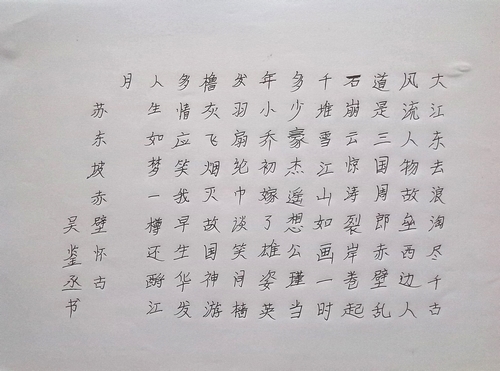 大江东去浪淘尽千古
风流人物故垒西边人
道是三国周郎赤壁乱
石崩云惊涛裂岸卷起
千堆雪江山如画一时
多少豪杰遥想公瑾当
年小乔初嫁了雄姿英
发羽扇纶巾谈笑间樯
橹灰飞烟灭故国神游
多情应笑我早生华发
人生如梦一樽还酹江
月
苏东坡赤壁怀古
吴鉴丞书